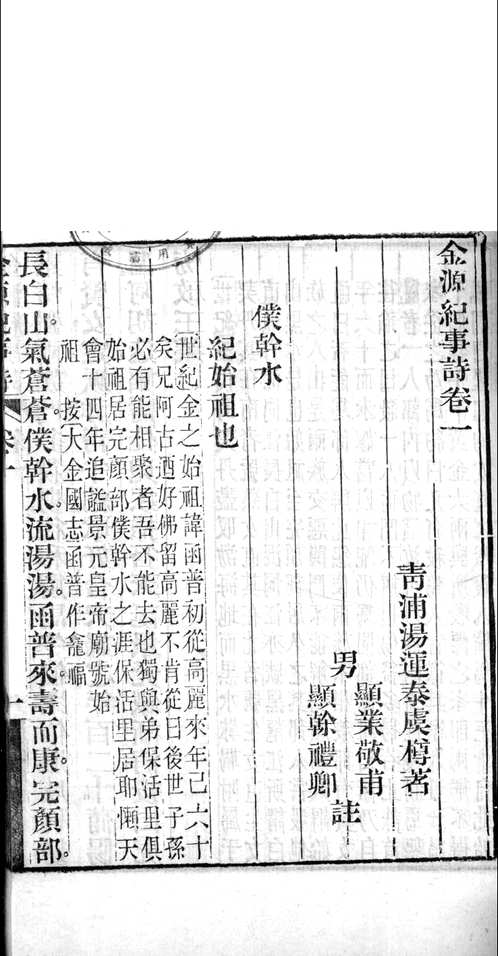 金源紀事詩卷一
青浦湯運泰虞樽著
男
顯業敬甫
顯幹禮卿
註
僕幹水
紀始祖也
世紀金之始祖諱函普初從高麗來年已六十
矣兄阿古迺好佛留高麗不肯從曰後世子孫
必有能相聚者吾不能去也獨與弟保活里俱
始祖居完顏部僕幹水之涯保活里居耶懶天
會十四年追諡景元皇帝廟號始
祖
按大金國志函普作龕福
長白山氣蒼蒼僕幹水流湯湯函普來壽而康完顏部
金源紀事詩
卷一
一